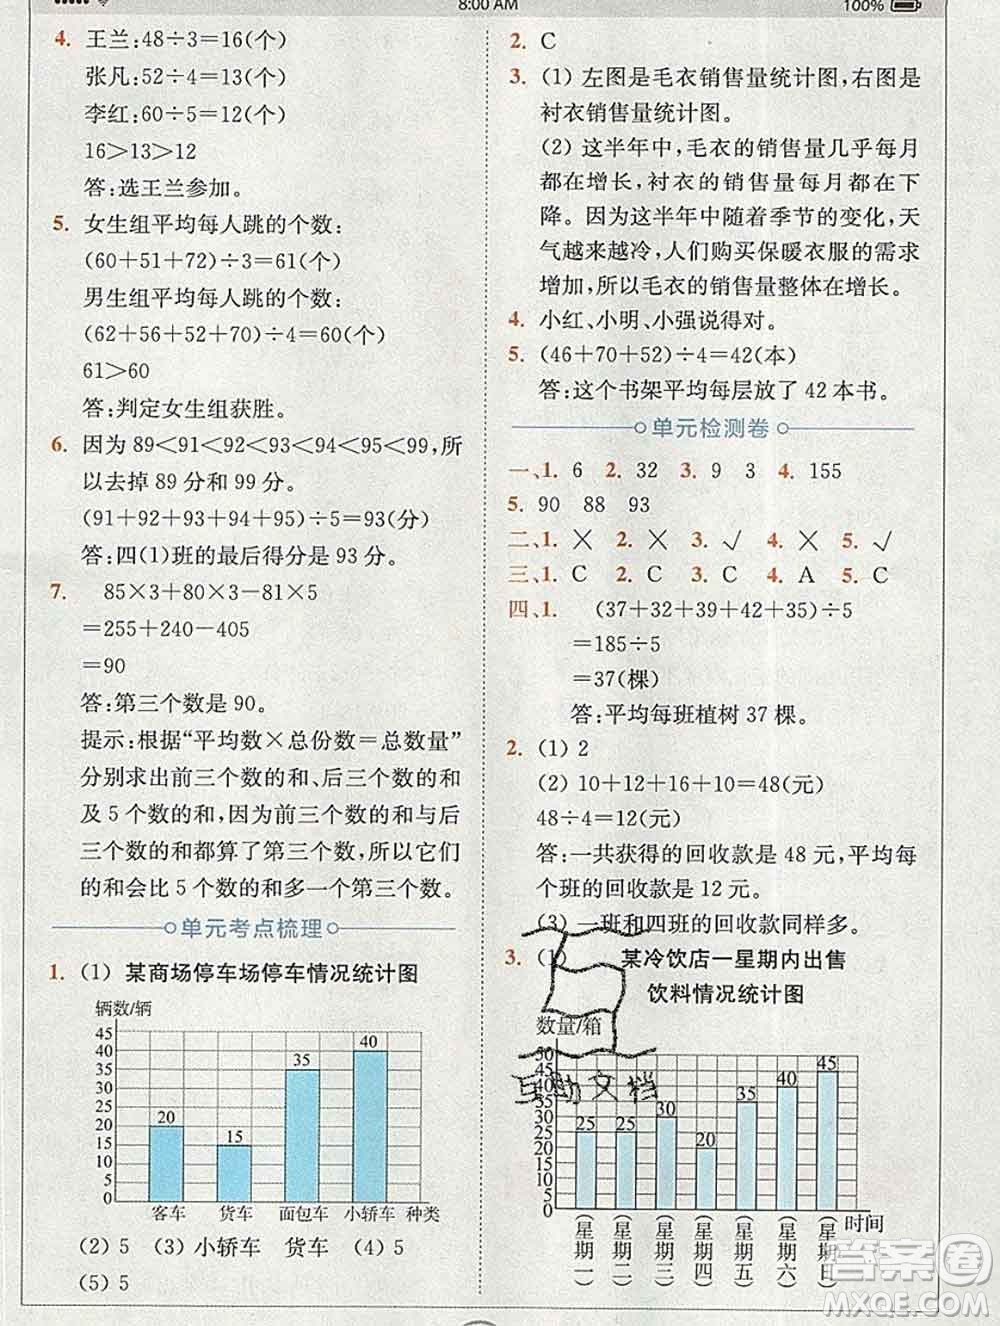 8:00 AM
100%
4. 王兰:48÷3=16(个)
张凡:52÷4=13(个)
李红:60÷5=12(个)
16>13>12
答:选王兰参加。
5. 女生组平均每人跳的个数:
(60+51+72)÷3=61(个)
男生组平均每人跳的个数:
(62+56+52+70)÷4=60(个)
61>60
答:判定女生组获胜。
6. 因为 89<91<92<93<94<95<99,所
以去掉 89 分和 99 分。
(91+92+93+94+95)÷5=93(分)
答:四(1)班的最后得分是 93 分。
7. 85×3+80×3-81×5
=255+240-405
=90
答:第三个数是 90。
提示:根据“平均数×总份数=总数量”
分别求出前三个数的和、后三个数的和
及 5 个数的和,因为前三个数的和与后
三个数的和都算了第三个数,所以它们
的和会比 5 个数的和多一个第三个数。
单元考点梳理
1. (1) 某商场停车场停车情况统计图
辆数/辆
45
40
35
30
25
20
15
10
5
0
20
15
35
40
客车 货车 面包车 小轿车 种类
(2) 5 (3) 小轿车 货车 (4) 5
(5) 5
2. C
3. (1) 左图是毛衣销售量统计图,右图是
衬衣销售量统计图。
(2) 这半年中,毛衣的销售量几乎每月
都在增长,衬衣的销售量每月都在下
降。因为这半年中随着季节的变化,天
气越来越冷,人们购买保暖衣服的需求
增加,所以毛衣的销售量整体在增长。
4. 小红、小明、小强说得对。
5. (46+70+52)÷4=42(本)
答:这个书架平均每层放了 42 本书。
单元检测卷
一、1. 6 2. 32 3. 9 3 4. 155
5. 90 88 93
二、1. × 2. × 3. √ 4. × 5. √
三、1. C 2. C 3. C 4. A 5. C
四、1. (37+32+39+42+35)÷5
=185÷5
=37(棵)
答:平均每班植树 37 棵。
2. (1) 2
(2) 10+12+16+10=48(元)
48÷4=12(元)
答:一共获得的回收款是 48 元,平均每
个班的回收款是 12 元。
(3) 一班和四班的回收款同样多。
3. (1) 某冷饮店一星期内出售
饮料情况统计图
数量/箱
50
45
40
35
30
25
20
15
10
5
0
25
25
30
20
35
40
45
(星期一) (星期二) (星期三) (星期四) (星期五) (星期六) (星期日) 时间
互助文档
答案圈
MXQE.COM